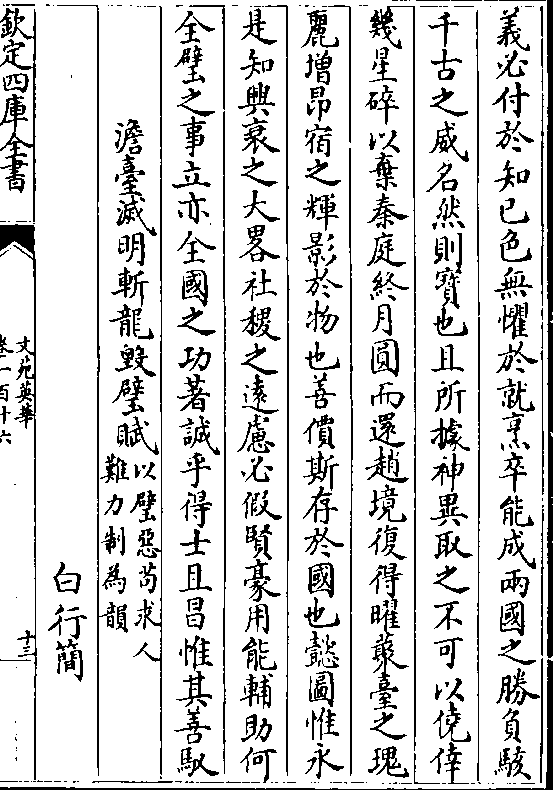 義必付於知已色無懼於就烹卒能成兩國之勝負駭
千古之威名然則寳也且所據神異取之不可以僥倖
幾星碎以棄秦庭終月圓而還趙境復得曜叢臺之瑰
麗增昂宿之輝影於物也善價斯存於國也懿圖惟永
是知興衰之大畧社稷之遠慮必假賢豪用能輔助何
全璧之事立亦全國之功著誠乎得士且昌惟其善馭
澹臺滅明斬龍毀璧賦以璧惡苟求人
難力制為韻
白行簡
欽定四庫全書
文苑英華
卷一百十六
十三